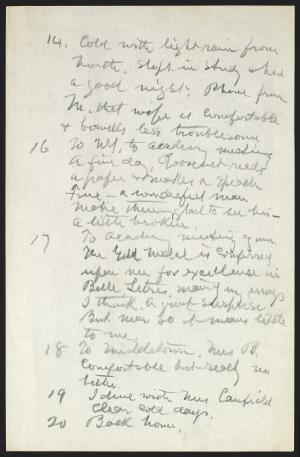 14. Cold with light rain from
North. Slept in Study & had
a good night. Phone from
M. that wife is comfortable
& bowels less troublesome
16 To N.Y. to academy meeting
a fine day, Roosevelt reads
a paper & makes a speech
Fine — a wonderful man
make thing glad to see him —
a little broken.
17 To Academy meeting again.
The Gold Medal is conferred
upon me for excellence in
Belle Letters, mainly in essays
I think. A great surprise.
But now so it means little
to me.
18 To Middletown. Mrs B.
comfortable but really no
better.
19 I dine with Mrs Canfield
Clear cold days.
20 Back home.